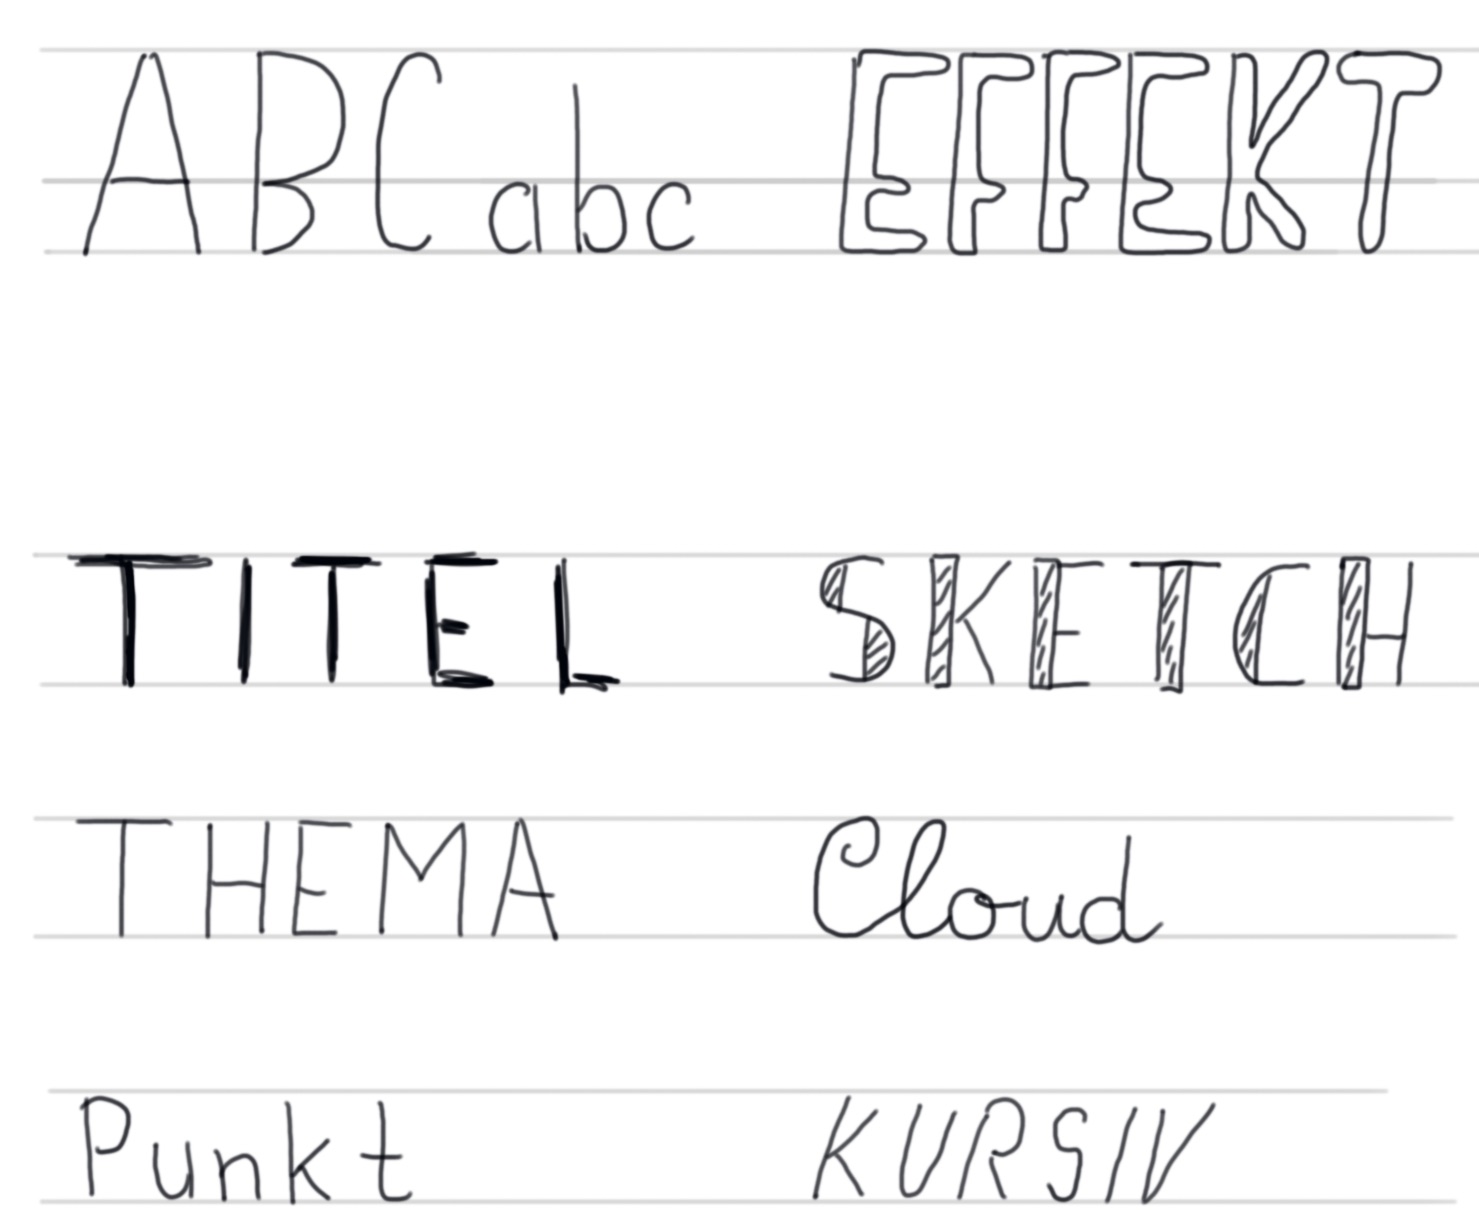 ABCabc EFFEKT
TITEL SKETCH
THEMA Cloud
Punkt KURSIV